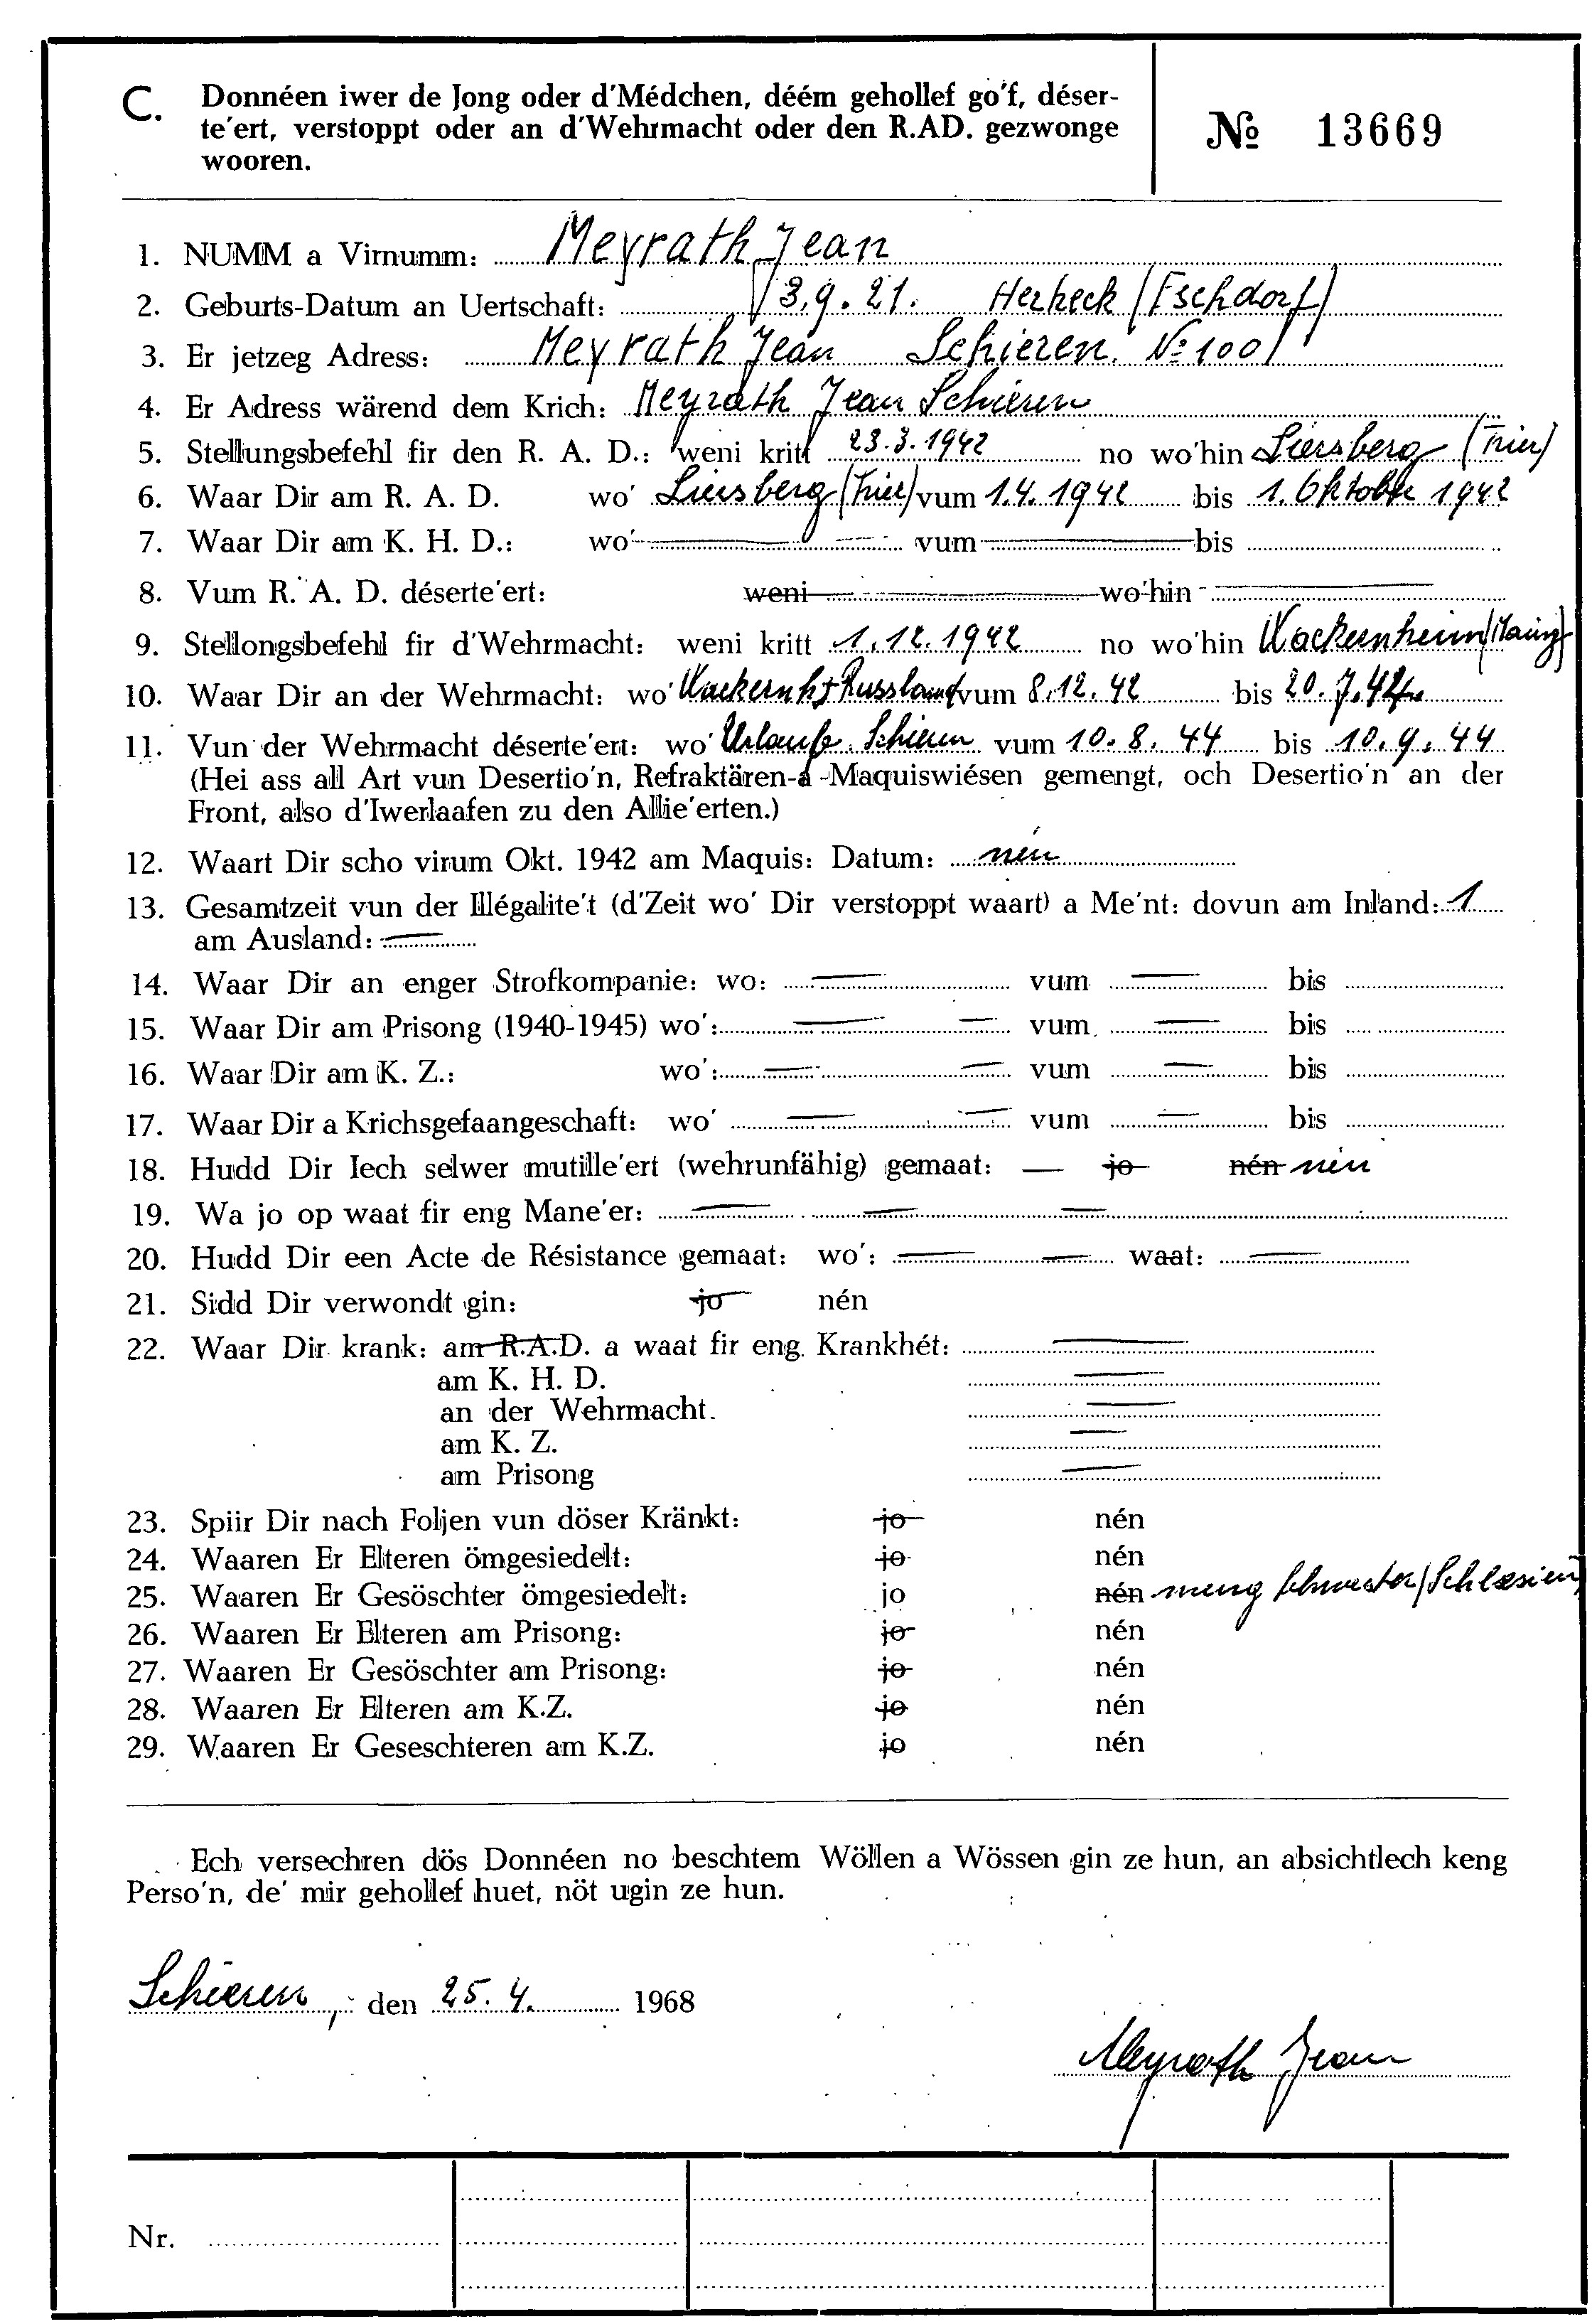 C. Donnéen iwer de Jong oder d'Médchen, déém gehollef go'f, déser-
te'ert, verstoppt oder an d'Wehrmacht oder den R.AD. gezwonge
wooren.
№ 13669
1. NUMM a Virnumm: Meyrath Jean
2. Geburts-Datum an Uertschaft: 3.9.21. Herheck (Eschdorf)
3. Er jetzeg Adress: Meyrath Jean Schieren. № 100
4. Er Adress wärend dem Krich: Meyrath Jean Schieren
5. Stellungsbefehl fir den R. A. D.: weni kritt 23.3.1942 no wo'hin Liersberg (Trier)
6. Waar Dir am R. A. D. wo' Liersberg (Trier) vum 1.4.1942 bis 1. Oktober 1942
7. Waar Dir am K. H. D.: wo' vum bis
8. Vum R. A. D. déserte'ert: weni wo'hin
9. Stellongsbefehl fir d'Wehrmacht: weni kritt 1.12.1942 no wo'hin Wackernheim (Mainz)
10. Waar Dir an der Wehrmacht: wo' Wackernh + Russland vum 8.12.42 bis 20.7.44
11. Vun der Wehrmacht déserte'ert: wo' Urlaub Schieren vum 10.8.44 bis 10.9.44
(Hei ass all Art vun Desertio'n, Refraktären-a-Maquiswiésen gemengt, och Desertio'n an der
Front, also d'Iwerlaafen zu den Allie'erten.)
12. Waart Dir scho virum Okt. 1942 am Maquis: Datum: nén
13. Gesamtzeit vun der Illégalite't (d'Zeit wo' Dir verstoppt waart) a Me'nt: dovun am Inland: 1
am Ausland:
14. Waar Dir an enger Strofkompanie: wo: vum bis
15. Waar Dir am Prisong (1940-1945) wo': vum bis
16. Waar Dir am K. Z.: wo': vum bis
17. Waar Dir a Krichsgefaangeschaft: wo' vum bis
18. Hudd Dir Iech selwer mutille'ert (wehrunfähig) gemaat: — jo nén nén
19. Wa jo op waat fir eng Mane'er:
20. Hudd Dir een Acte de Résistance gemaat: wo': waat:
21. Sidd Dir verwondt gin: jo nén
22. Waar Dir krank: am R.A.D. a waat fir eng Krankhét:
am K. H. D.
an der Wehrmacht.
am K. Z.
am Prisong
23. Spiir Dir nach Foljen vun döser Kränkt: jo nén
24. Waaren Er Elteren ömgesiedelt: jo nén
25. Waaren Er Gesöschter ömgesiedelt: jo nén meng Schwester (Schlesien)
26. Waaren Er Elteren am Prisong: jo nén
27. Waaren Er Gesöschter am Prisong: jo nén
28. Waaren Er Elteren am K.Z. jo nén
29. Waaren Er Geseschteren am K.Z. jo nén
Ech versechren dös Donnéen no beschtem Wöllen a Wössen gin ze hun, an absichtlech keng
Perso'n, de' mir gehollef huet, nöt ugin ze hun.
Schieren, den 25.4. 1968
Meyrath Jean
Nr.